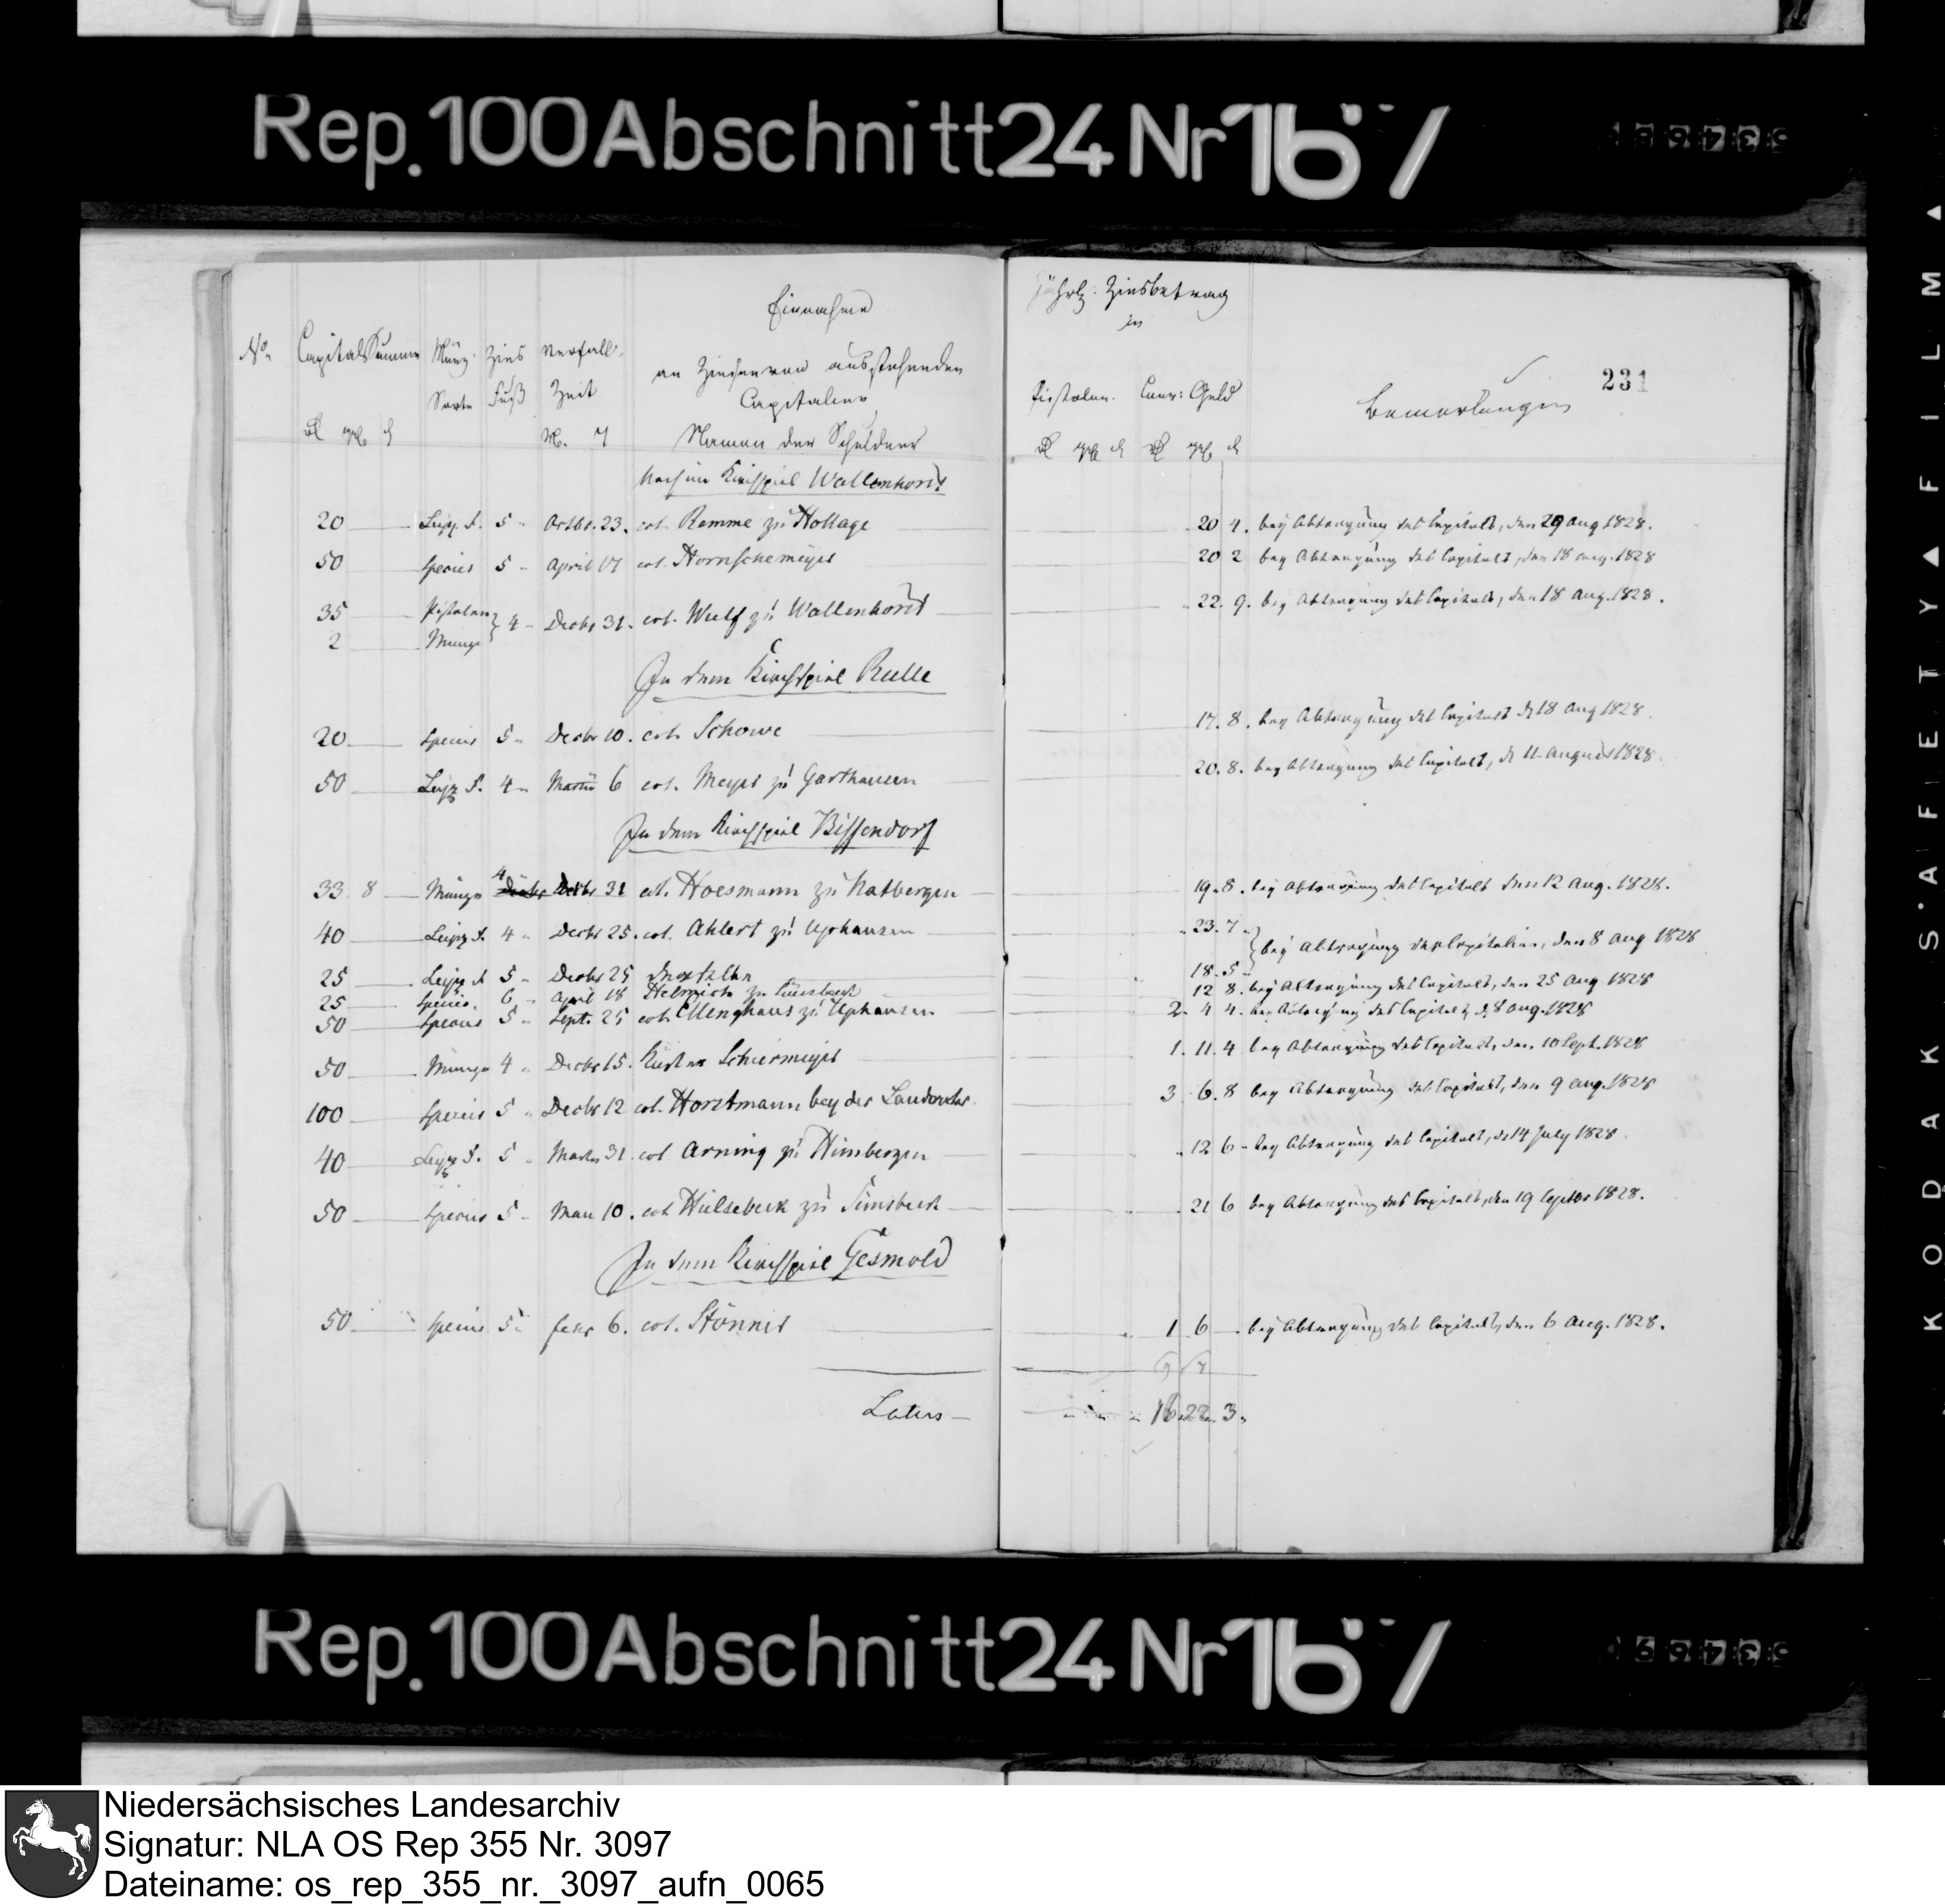 Rep. 100 Abschnitt 24 Nr 167
Einnahme
an Zinsen von ausstehenden
Capitalien
Namen der Schuldner
No. Capital Summe Münz Sorte Zins Fuß Verfall Zeit
M. T
Jährl. Zinsbetrag
in
Pistolen. Conv: Geld
Bemerkungen
231
noch im Kirchspiel Wallenhorst
20 Leipz. F. 5 Octbr. 23. col. Remme zu Hollage 20 4. bey Abtragung des Capitals, den 29 Aug 1828.
50 Species 5 April 17 col. Hornschemeyer 20 2 bey Abtragung des Capitals, den 18 Aug. 1828
35 Pistolen 4 Decbr 31. col. Wulf zu Wallenhorst 22. 9. bey Abtragung des Capitals, den 18 Aug. 1828.
2 Münze
In dem Kirchspiel Rulle
20 Species 5 Decbr 10. col. Schowe 17. 8. bey Abtragung des Capitals d 18 Aug 1828.
50 Leipz F. 4 Martii 6 col. Meyer zu Garthausen 20. 8. bey Abtragung des Capitals, d 11 August 1828.
In dem Kirchspiel Bissendorf
33 8 Münze 4 Decbr 31 col. Hoesmann zu Natbergen 19. 8. bey Abtragung des Capitals den 12 Aug. 1828.
40 Leipz F. 4 Decbr 25. col. Ahlert zu Uphausen 23. 7 bey Abtragung der Capitalien, den 8 Aug 1828
25 Leipz F 5 Decbr 25 derselbe 18. 5
25 Species. 6 April 18 Helmich zu 12 8. bey Abtragung des Capitals, den 25 Aug 1828
50 Species 5 Sept. 25 col. Menghaus zu Uphausen 2. 4 4. bey Abtragung des Capitals d 8 Aug. 1828
50 Münze 4 Decbr 15. Küster Schiermeyer 1. 11. 4 bey Abtragung des Capitals, den 10 Sept. 1828
100 Species 5 Decbr 12 col. Horstmann bey der Landwehr 3 6. 8 bey Abtragung des Capitals, den 9 Aug. 1828
40 Leipz F. 5 Martii 31. col Arning zu Himbergen 12 6 bey Abtragung des Capitals, d 14 July 1828.
50 Species 5 Maii 10. col Hülsebeck zu Linsbeck 21 6 bey Abtragung des Capitals, den 19 Septbr 1828.
In dem Kirchspiel Gesmold
50 Species 5 febr 6. col. Stönner 1 6 bey Abtragung des Capitals, den 6 Aug. 1828.
Latus 16. 22. 3.
Rep. 100 Abschnitt 24 Nr 167
KODAK SAFETY FILM
Niedersächsisches Landesarchiv
Signatur: NLA OS Rep 355 Nr. 3097
Dateiname: os_rep_355_nr._3097_aufn_0065